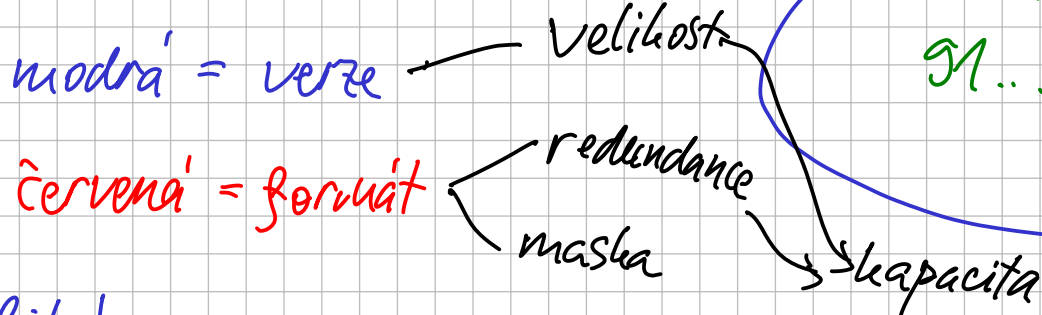 modrá = verze velikost 91...
červená = formát redundance
maska kapacita